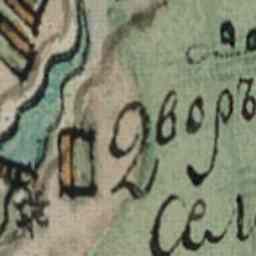 Дворъ
Сел